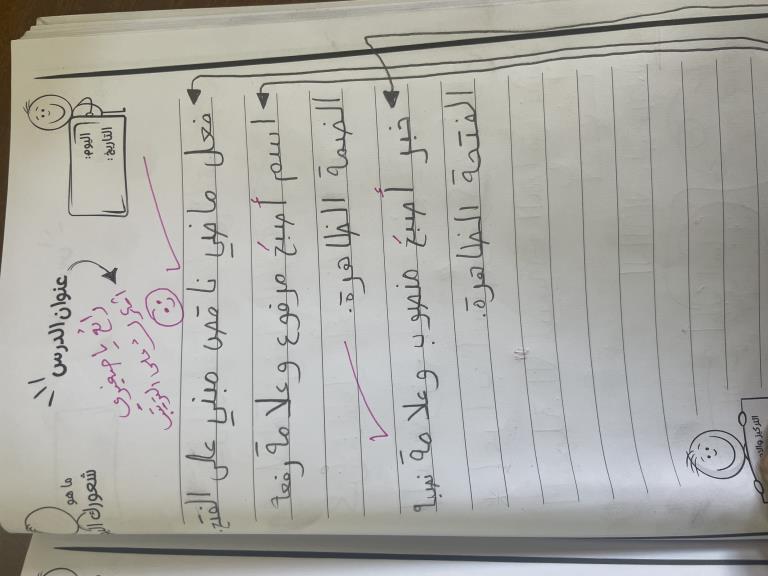 اليوم:
التاريخ:
عنوان الدرس
رائع يا صغيري
ما هو
شعورك ال
فعل ماضي ناقص مبني على الفتح.
اسم أصبحَ مرفوع وعلامة رفعه
الضمة الظاهرة.
خبر أصبحَ منصوب وعلامة نصبه
الفتحة الظاهرة.
التركيز والد